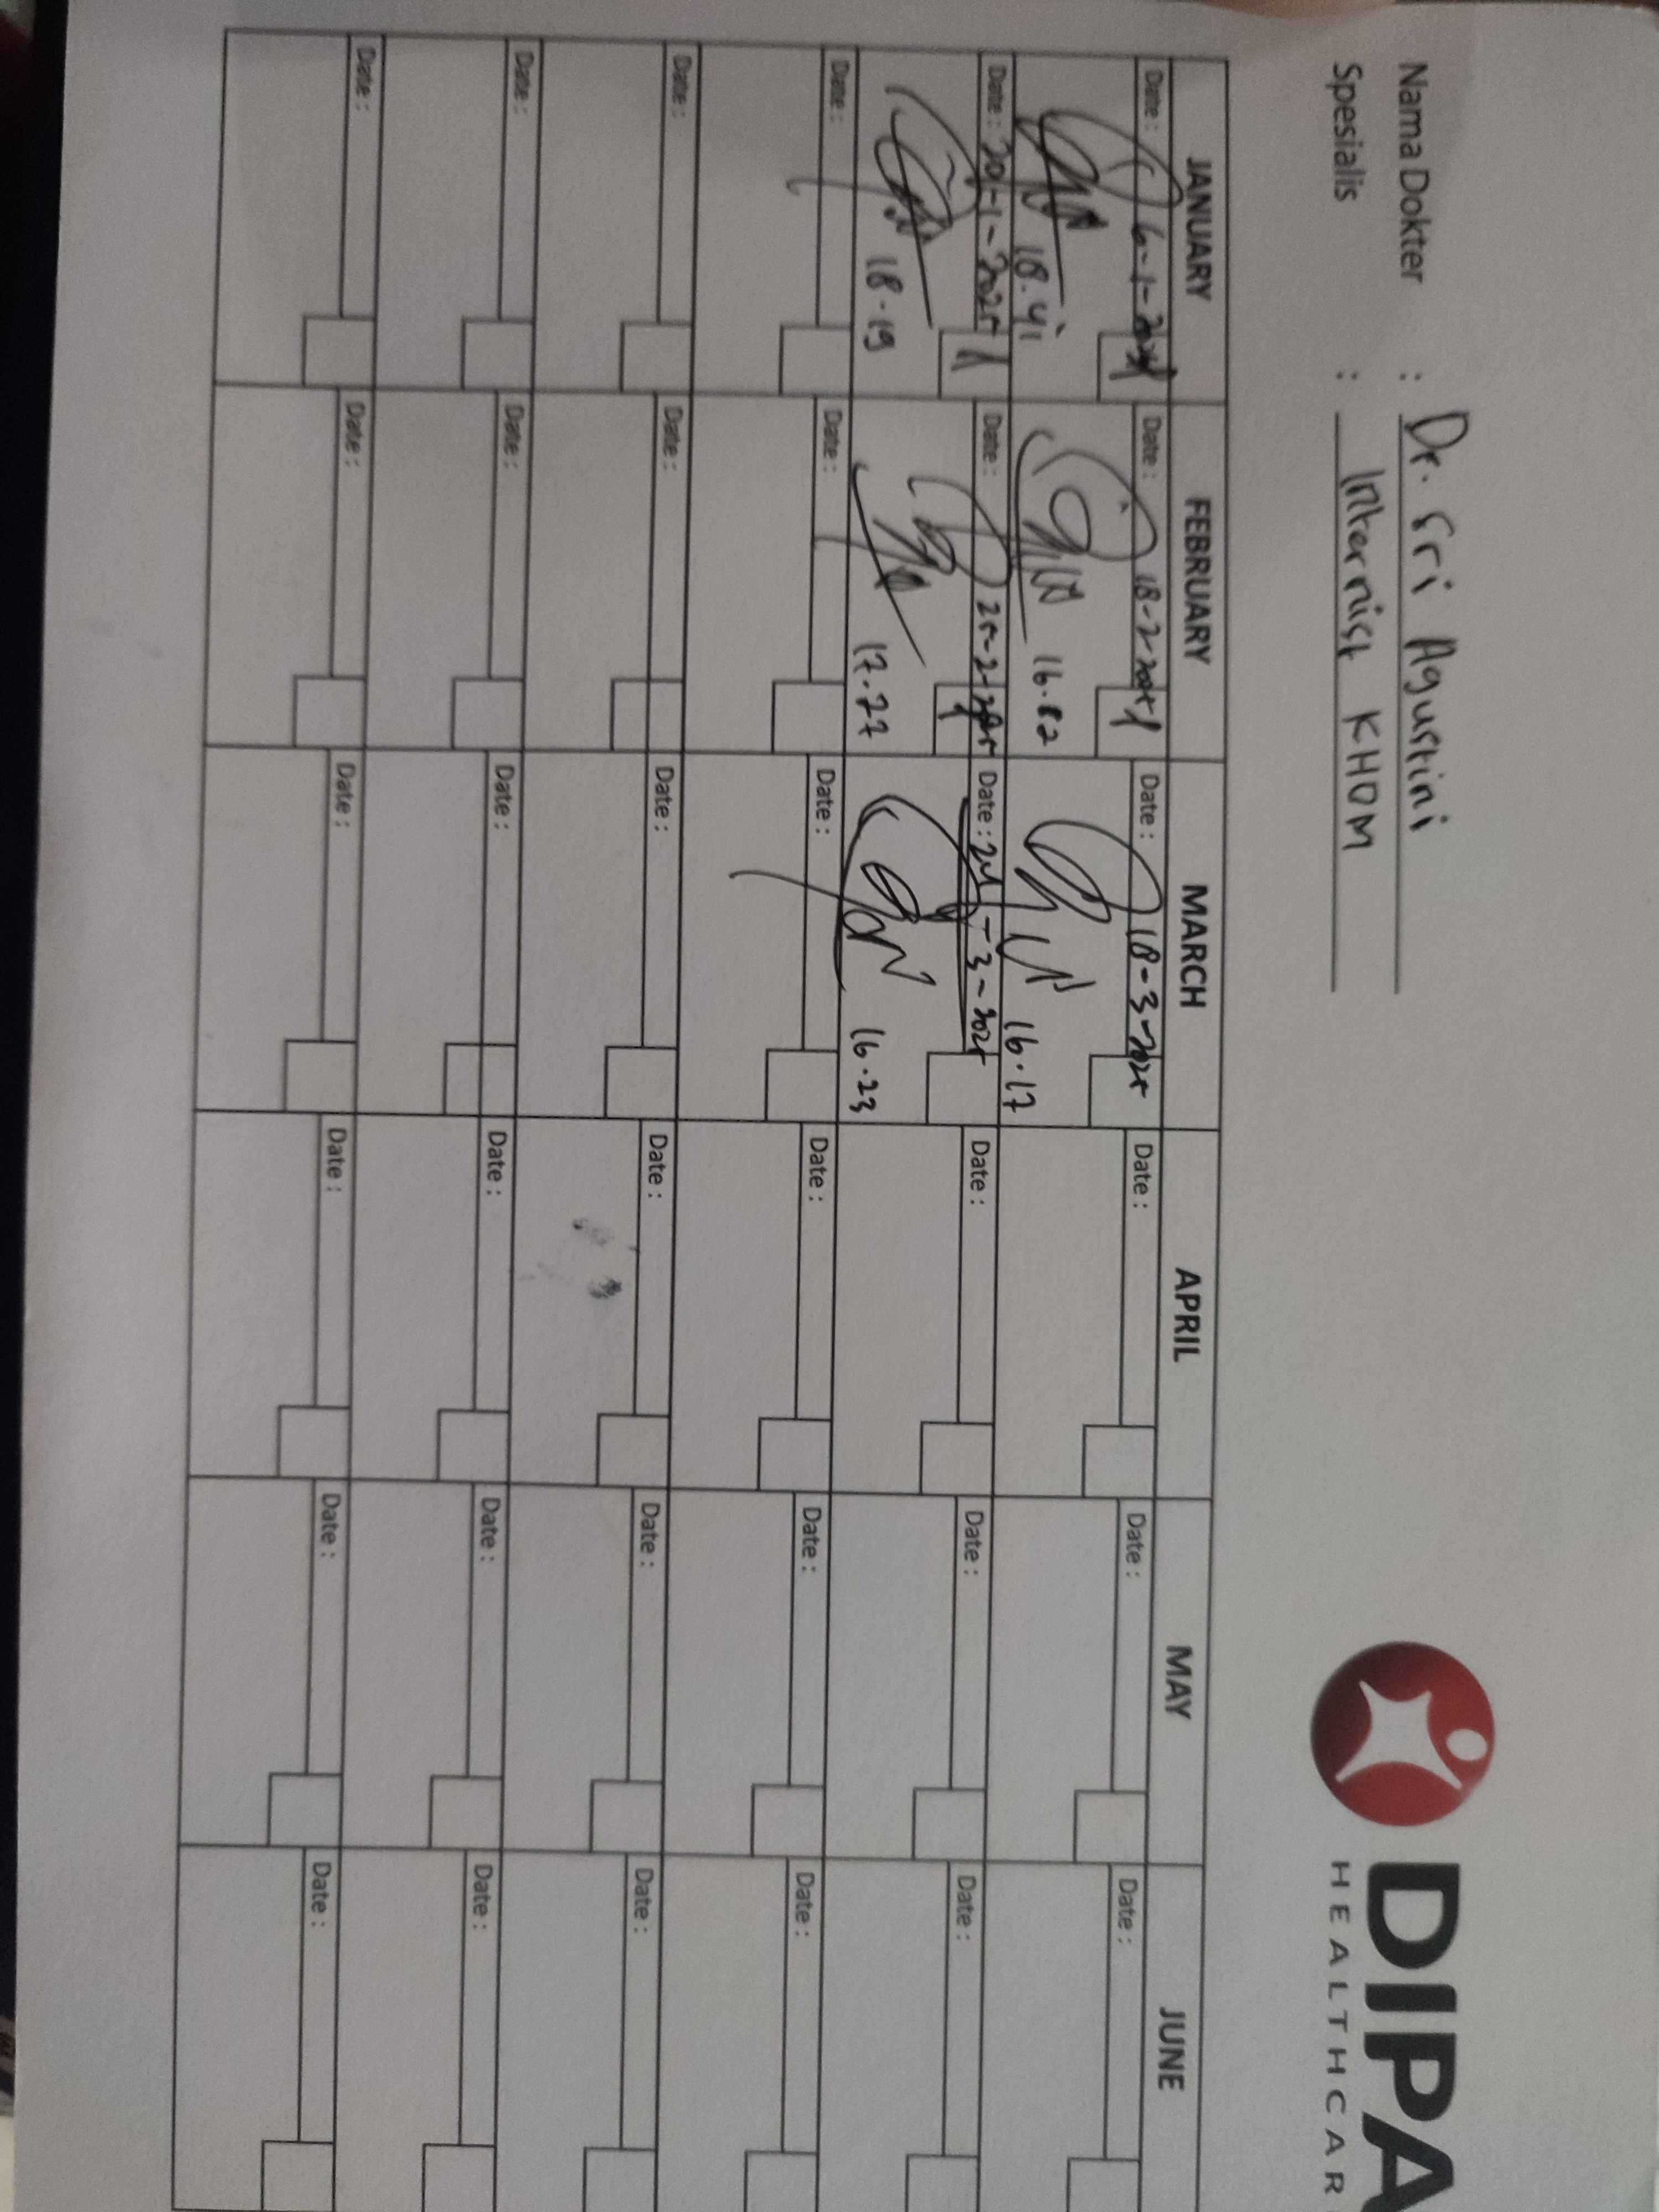 Nama Dokter : Dr. Sri Agustini
Spesialis : Internist KHOM
DIPA
HEALTHCAR
JANUARY FEBRUARY MARCH APRIL MAY JUNE
Date : 6-1- Date : 18-2-2025 Date : 18-3-2025 Date : Date : Date :
18.41 16.52 16.17
Date : 20-1-2025 Date : 25-2-2025 Date : 24-3-2025 Date : Date : Date :
18.19 17.27 16.23
Date : Date : Date : Date : Date : Date :
Date : Date : Date : Date : Date : Date :
Date : Date : Date : Date : Date : Date :
Date : Date : Date : Date : Date : Date :